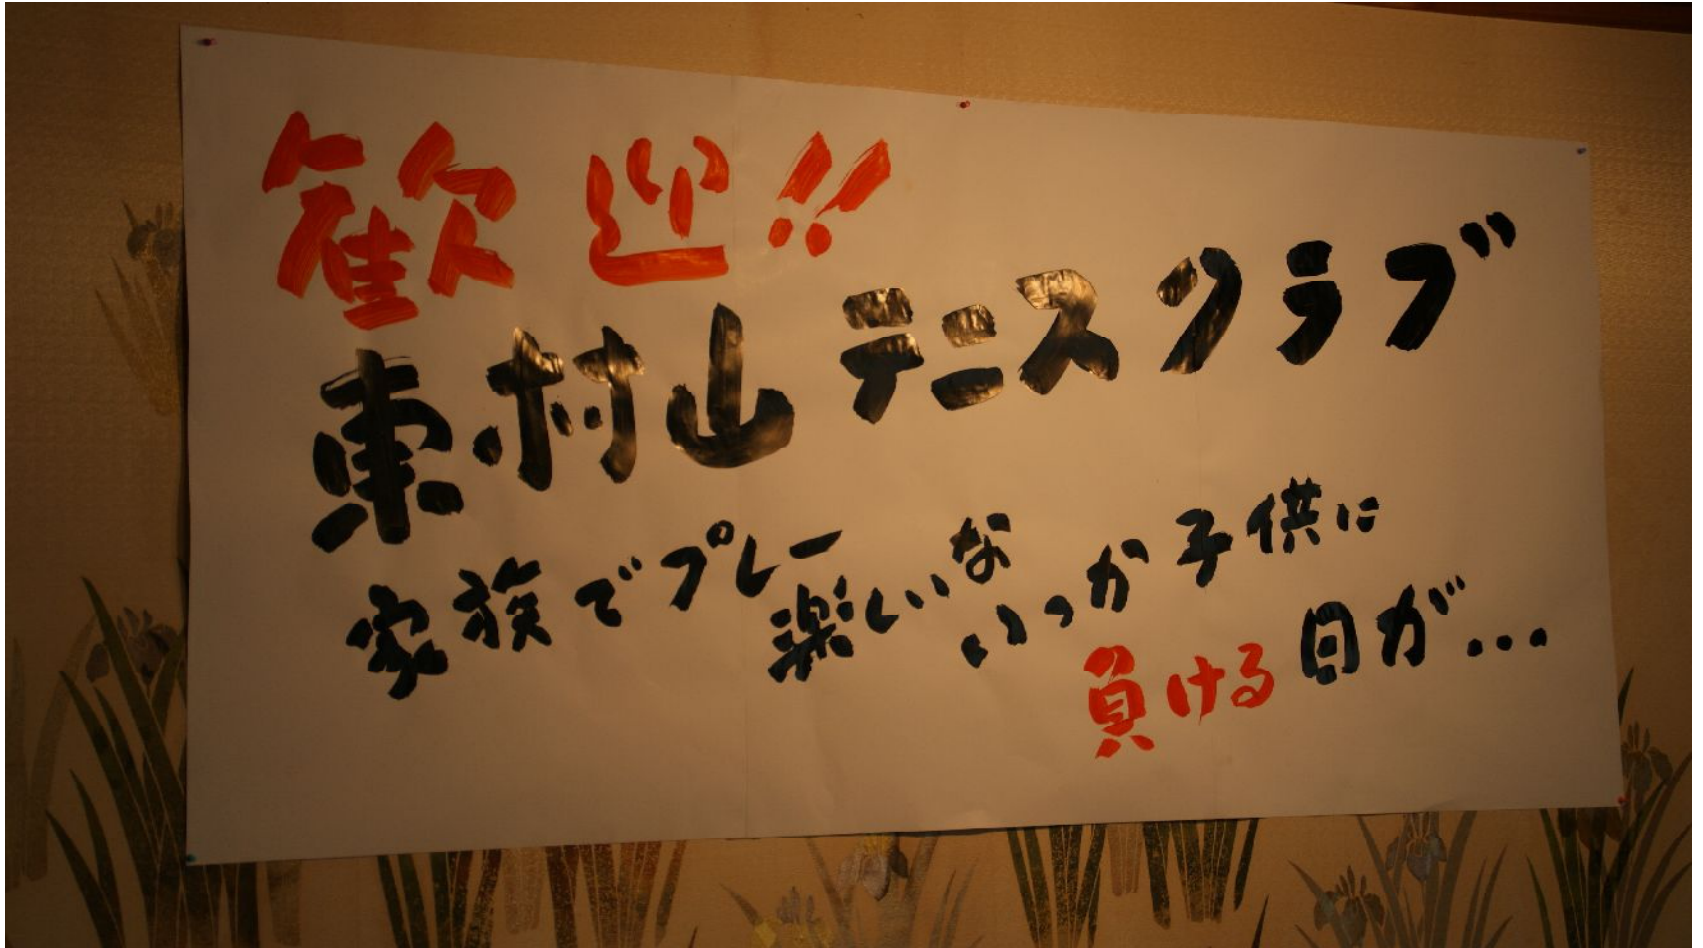 歓迎!!
東村山テニスクラブ
家族でプレー
楽しいな
いつか子供に
負ける日が...